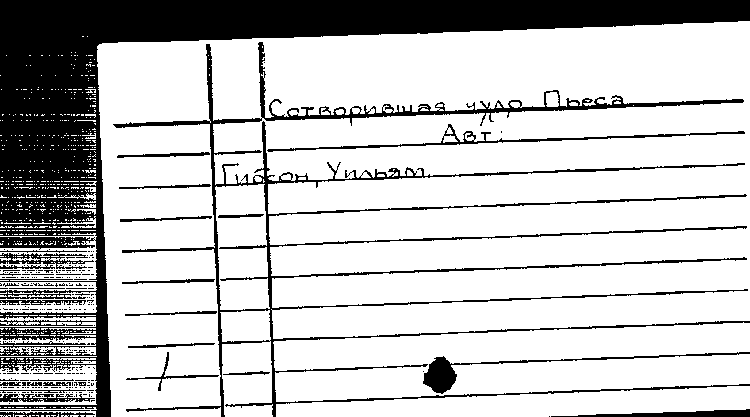 Сотворившая чудо Пьеса
Авт.:
Гибсон, Уильям.